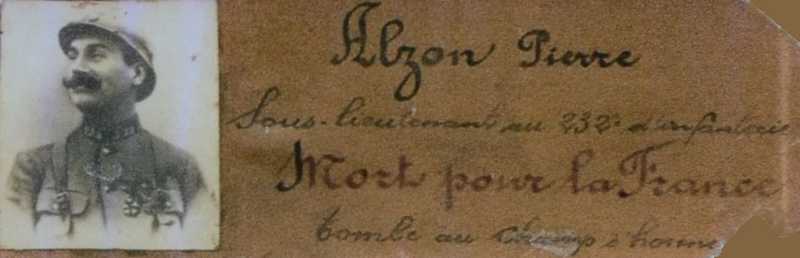 Alzon Pierre
Sous-lieutenant au 232e d'infanterie
Mort pour la France
tombé au champ d'honne